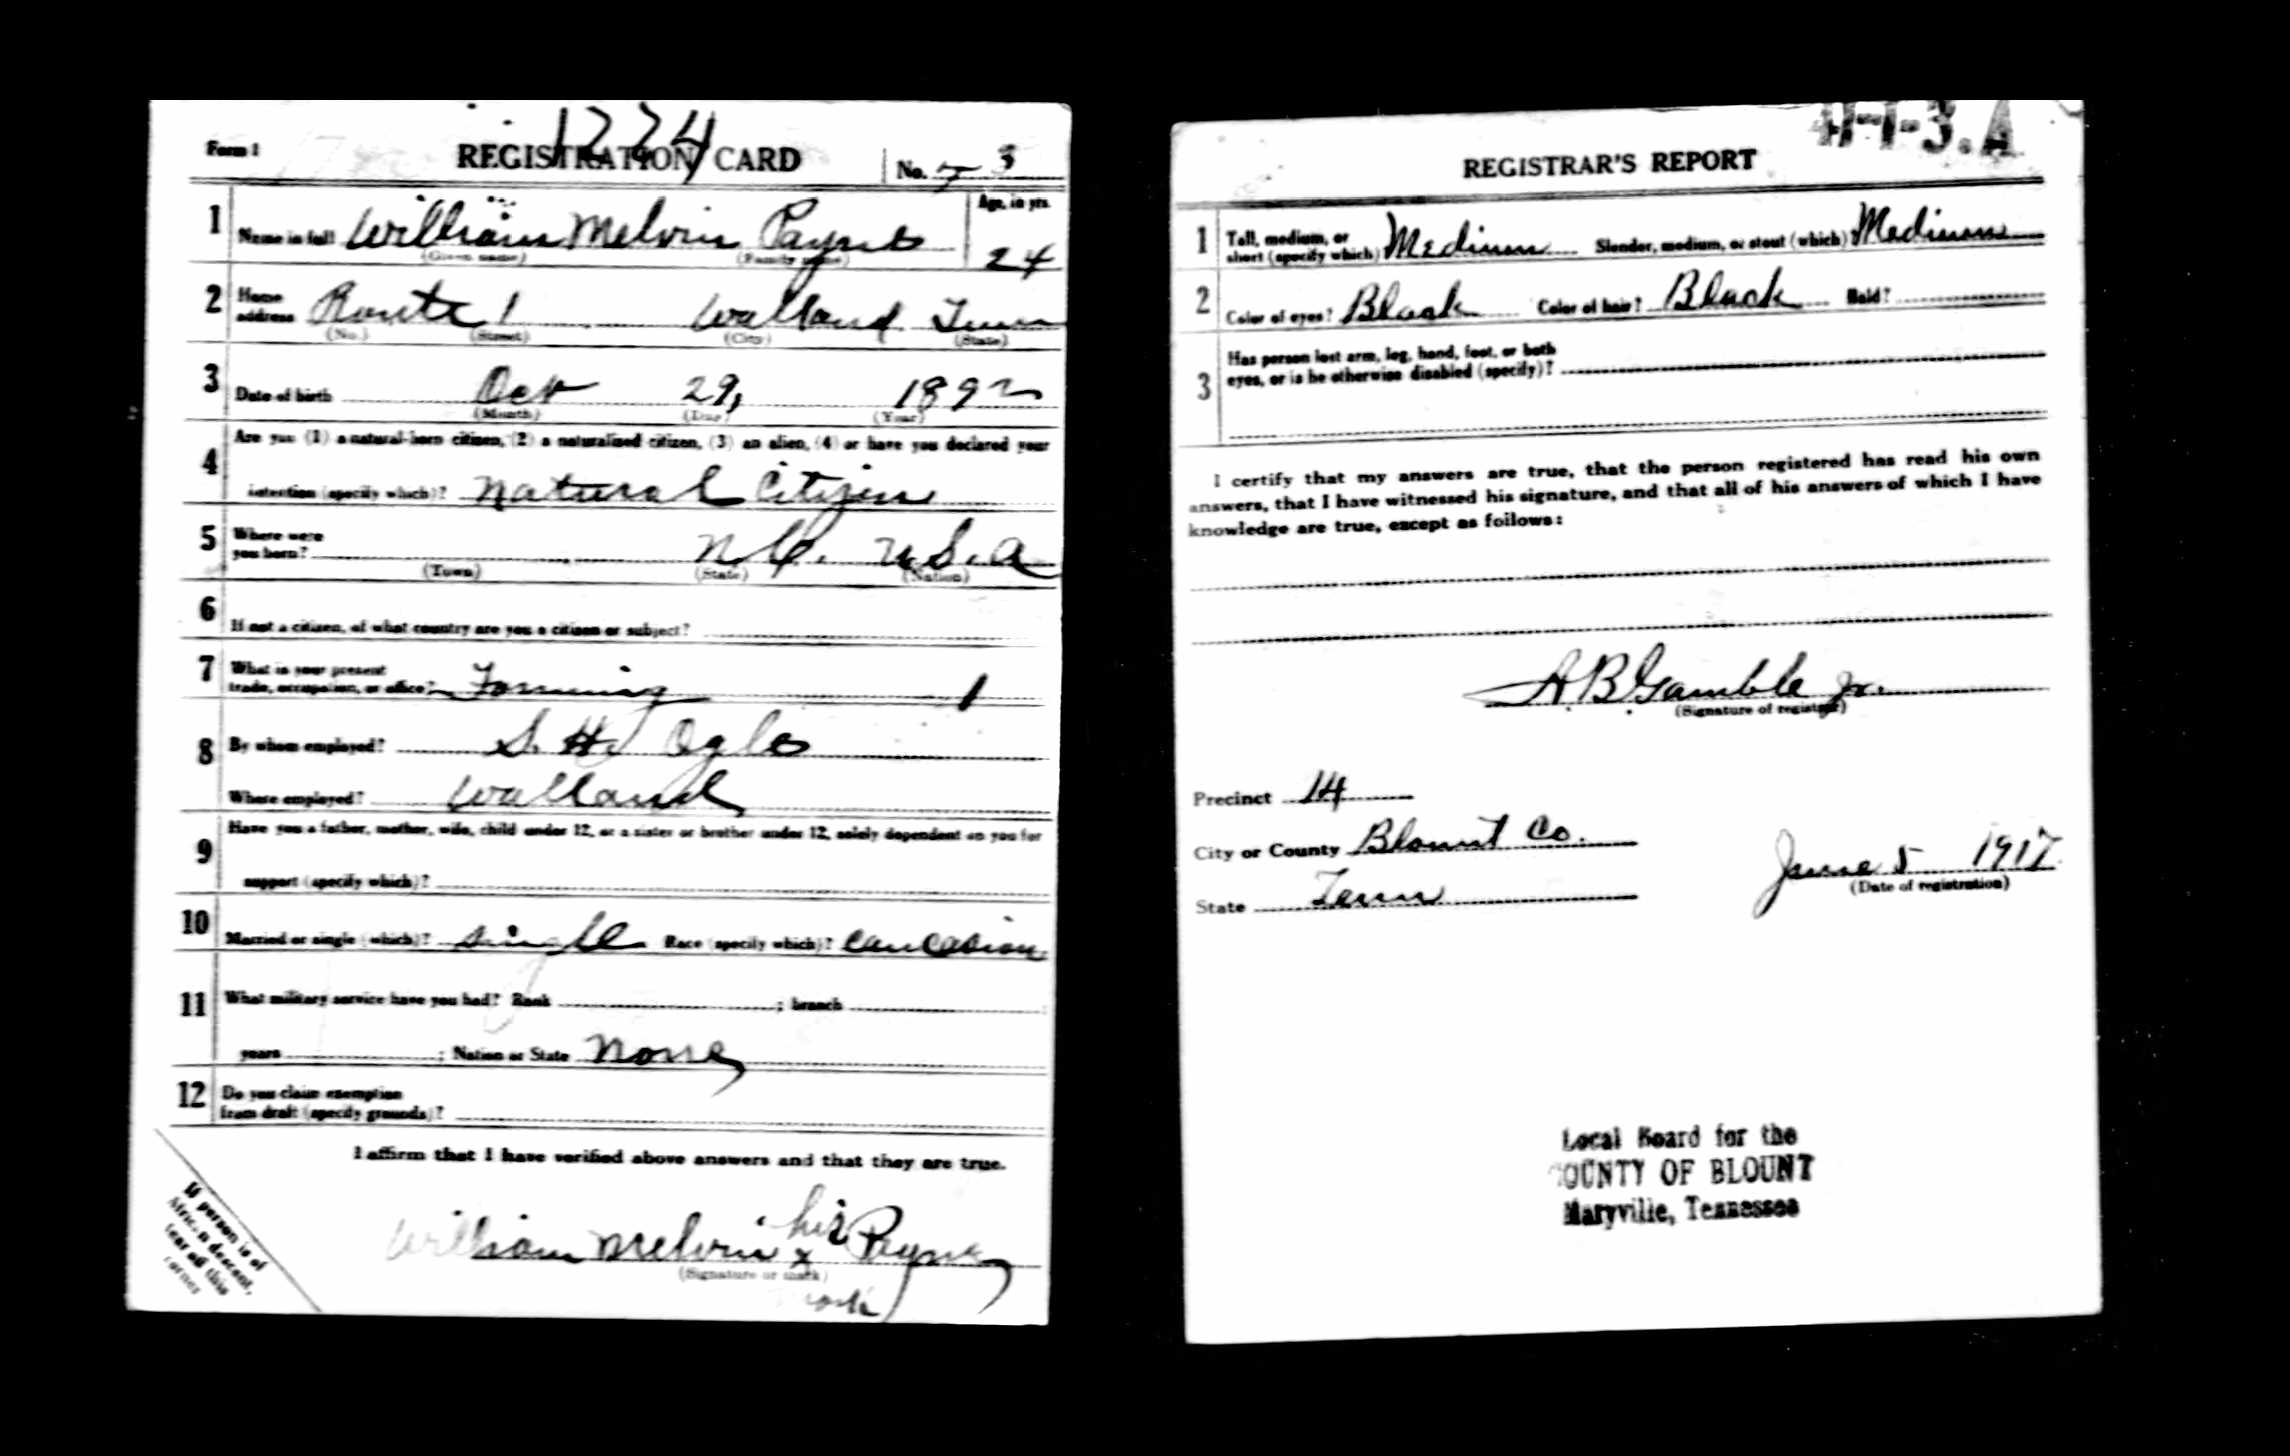 1774
Form 1 REGISTRATION CARD No. 3
1 Name in full William Melvin Payne Age, in yrs. 24
(Given name) (Family name)
2 Home address Route 1 Walland Tenn
(No.) (Street) (City) (State)
3 Date of birth Oct 29, 1892
(Month) (Day) (Year)
4 Are you (1) a natural-born citizen, (2) a naturalized citizen, (3) an alien, (4) or have you declared your
intention (specify which)? Natural Citizen
5 Where were you born? N.C. U.S.A
(Town) (State) (Nation)
6 If not a citizen, of what country are you a citizen or subject?
7 What is your present trade, occupation, or office? Farming 1
8 By whom employed? S. H. Ogle
Where employed? Walland
9 Have you a father, mother, wife, child under 12, or a sister or brother under 12, solely dependent on you for
support (specify which)?
10 Married or single (which)? Single Race (specify which)? Caucasian
11 What military service have you had? Rank ; branch
years ; Nation or State None
12 Do you claim exemption from draft (specify grounds)?
I affirm that I have verified above answers and that they are true.
William Melvin his x Payne
(Signature or mark)
mark
If person is of
African descent,
tear off this
corner
H-1-3.A
REGISTRAR'S REPORT
1 Tall, medium, or short (specify which)? Medium Slender, medium, or stout (which)? Medium
2 Color of eyes? Black Color of hair? Black Bald?
3 Has person lost arm, leg, hand, foot, or both
eyes, or is he otherwise disabled (specify)?
I certify that my answers are true, that the person registered has read his own
answers, that I have witnessed his signature, and that all of his answers of which I have
knowledge are true, except as follows:
A B Gamble Jr.
(Signature of registrar)
Precinct 14
City or County Blount Co.
State Tenn
June 5 1917
(Date of registration)
Local Board for the
COUNTY OF BLOUNT
Maryville, Tennessee